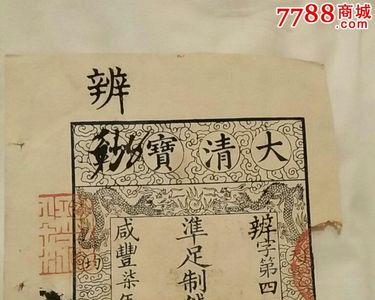 7788商城
.com
辨
大清寶鈔
辨字第四
準足制錢
咸豐柒年